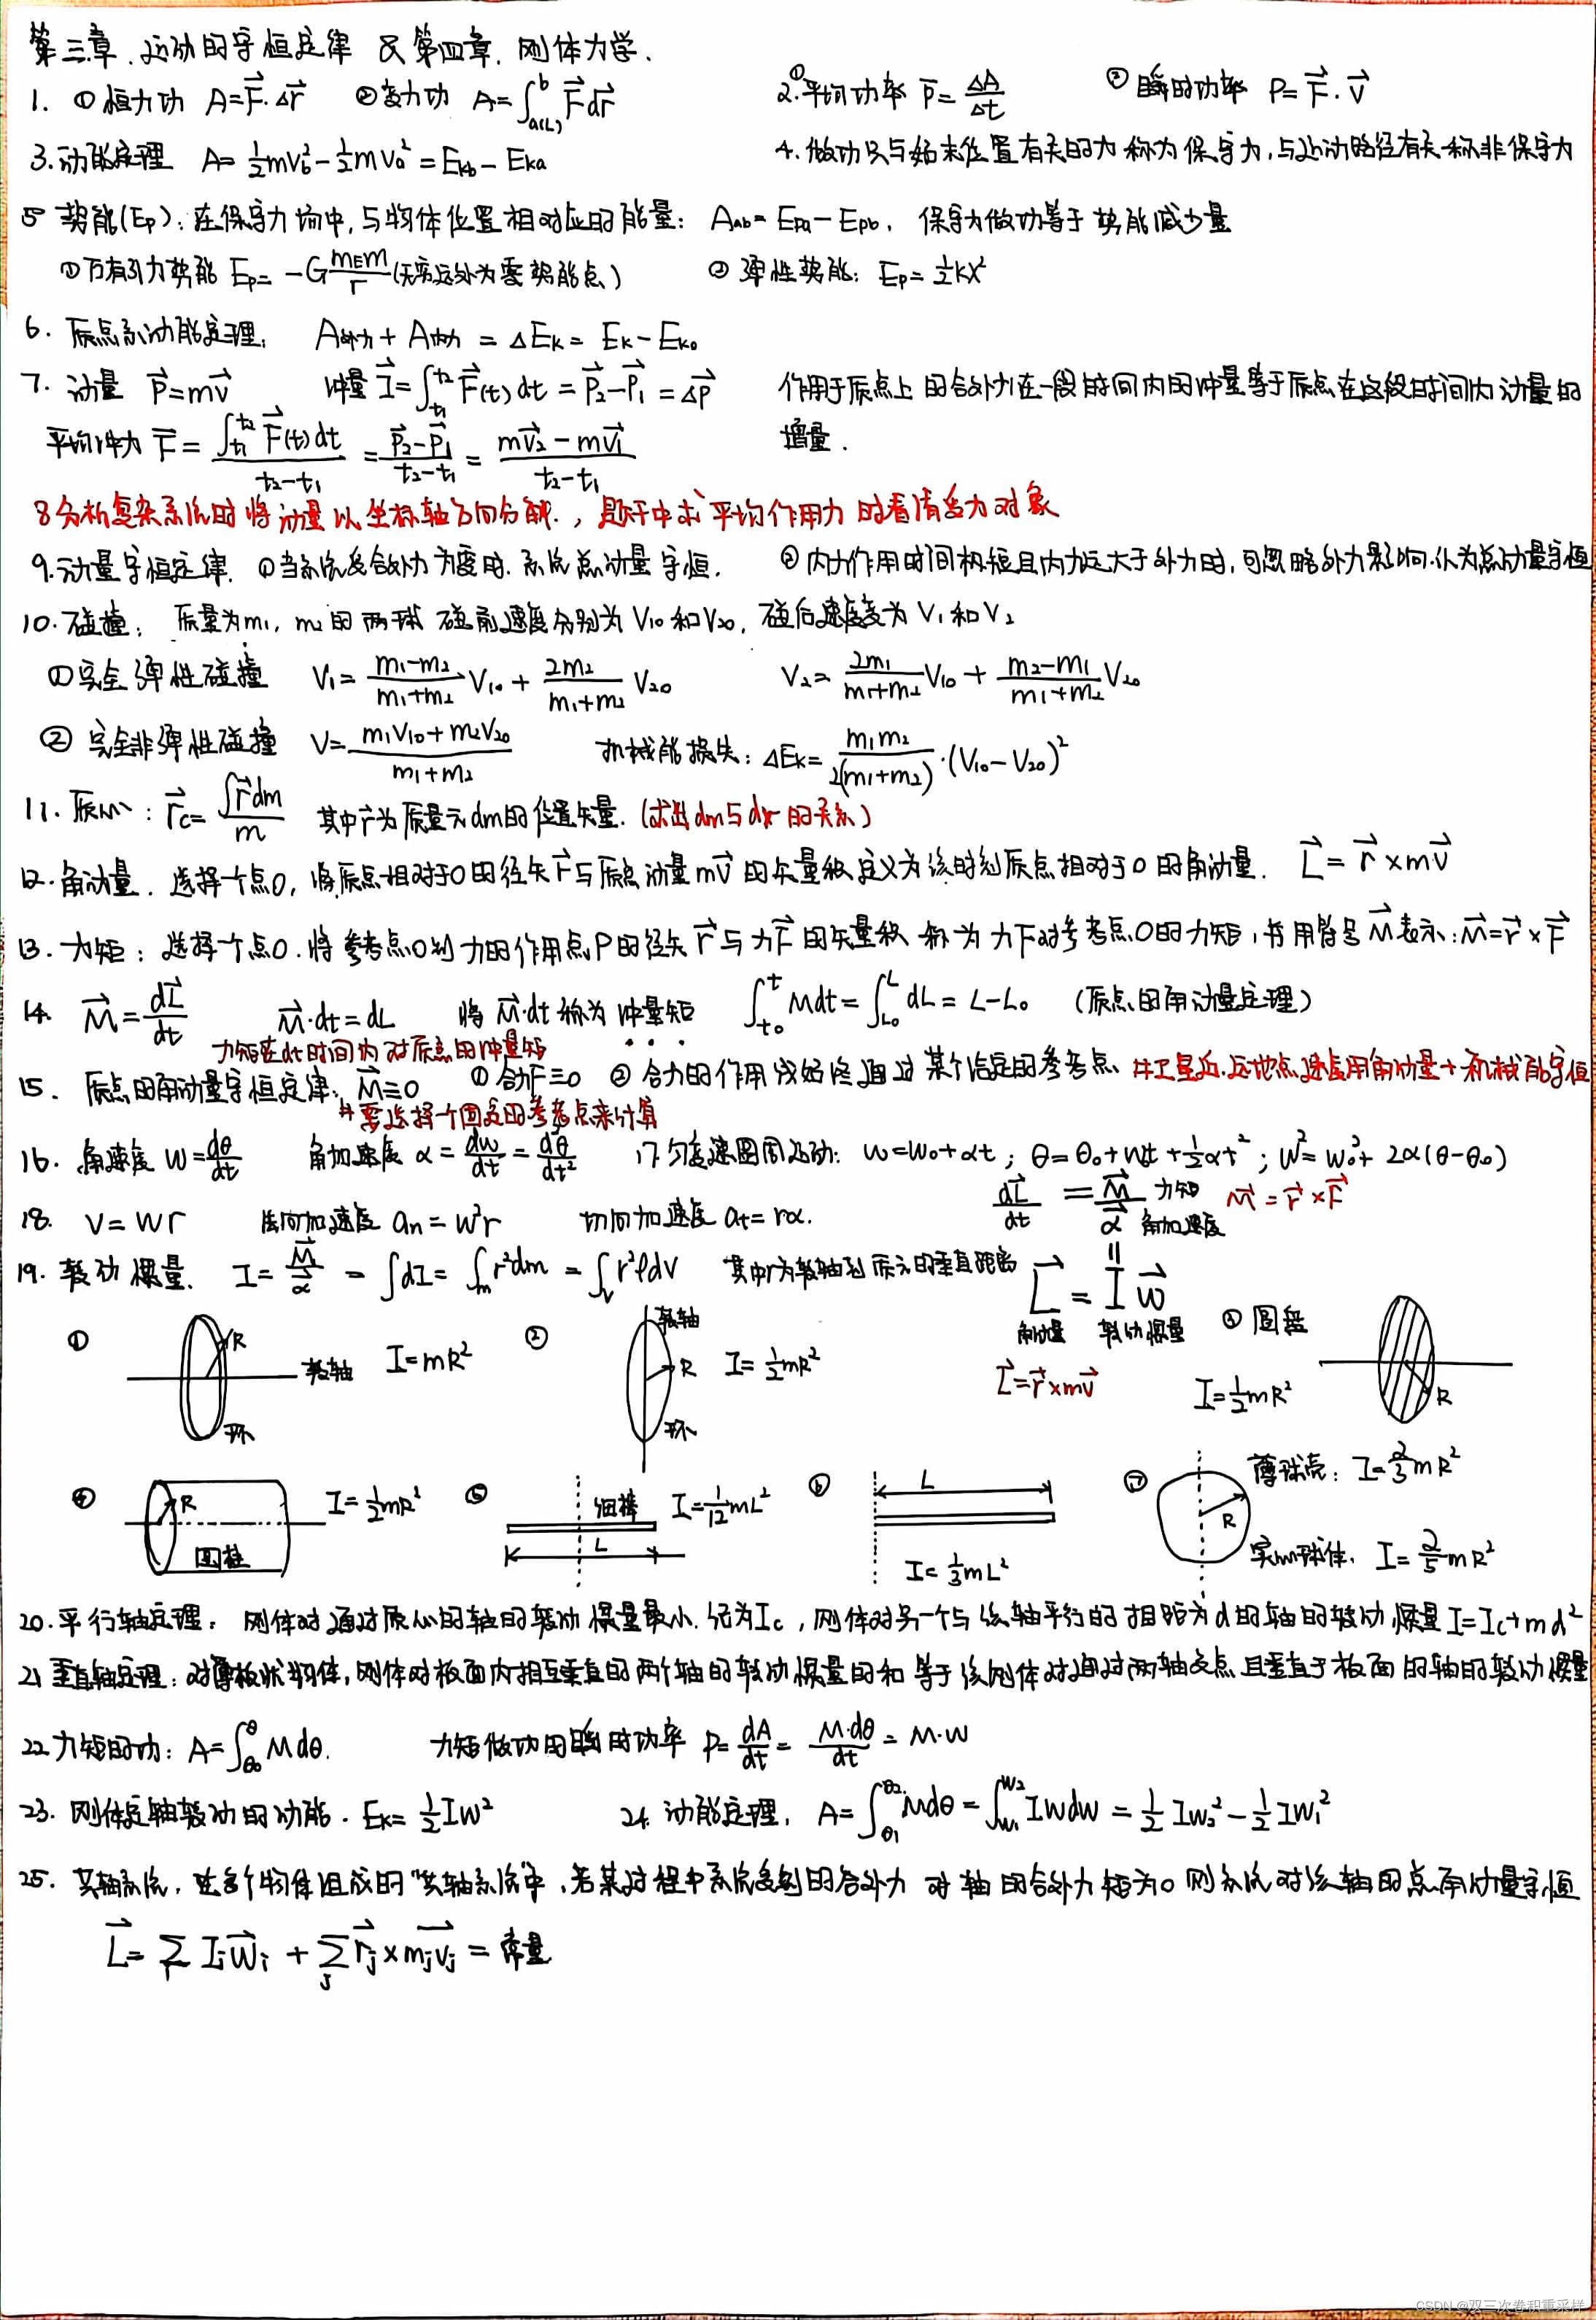 第三章.运动的守恒定律 及 第四章.刚体力学.
1. ①恒力功 A=F⃗·Δr⃗ ②变力功 A=∫_{a(L)}^{b} F⃗dr⃗ 2.①平均功率 P̄=ΔA/Δt ②瞬时功率 P=F⃗·V⃗
3.动能定理 A=½mv_b²-½mv_a²=E_kb-E_ka 4.做功只与始末位置有关的力称为保守力,与运动路径有关称非保守力
5 势能(Ep):在保守力场中,与物体位置相对应的能量: A_ab=E_pa-E_pb, 保守力做功等于势能减少量
①万有引力势能 Ep=-G m_E m/r (无穷远处为零势能点) ②弹性势能: Ep=½kx²
6. 质点系动能定理: A外力+A内力=ΔE_k=E_k-E_k0
7. 动量 P⃗=mv⃗ 冲量 I⃗=∫_{t1}^{t2}F⃗(t)dt=P⃗₂-P⃗₁=ΔP⃗ 作用于质点上的合外力在一段时间内的冲量等于质点在这段时间内动量的
增量.
平均冲力 F̄=∫_{t1}^{t2}F⃗(t)dt/(t₂-t₁)=(P⃗₂-P⃗₁)/(t₂-t₁)=(mv⃗₂-mv⃗₁)/(t₂-t₁)
8分析复杂系统时将动量以坐标轴方向分解., 题干中求平均作用力时看清受力对象
9.动量守恒定律. ①当系统受合外力为零时.系统总动量守恒. ②内力作用时间极短且内力远大于外力时,可忽略外力影响.认为总动量守恒
10.碰撞: 质量为m₁, m₂的两球 碰前速度分别为V₁₀和V₂₀, 碰后速度变为V₁和V₂
①完全弹性碰撞 V₁=(m₁-m₂)/(m₁+m₂) V₁₀+2m₂/(m₁+m₂) V₂₀ V₂=2m₁/(m₁+m₂) V₁₀+(m₂-m₁)/(m₁+m₂) V₂₀
②完全非弹性碰撞 V=(m₁V₁₀+m₂V₂₀)/(m₁+m₂) 机械能损失: ΔE_k=m₁m₂/2(m₁+m₂)·(V₁₀-V₂₀)²
11.质心: r⃗c=∫r⃗dm/m 其中r⃗为质量元dm的位置矢量.(求出dm与dr的关系)
12.角动量. 选择一个点O, 将质点相对于O的径矢r⃗与质点动量mv⃗的矢量积定义为该时刻质点相对于O的角动量. L⃗=r⃗×mv⃗
13.力矩: 选择一个点O.将参考点O到力的作用点P的径矢r⃗与力F⃗的矢量积 称为力F对参考点O的力矩,书用符号M⃗表示:M⃗=r⃗×F⃗
14. M⃗=dL⃗/dt M⃗·dt=dL 将M⃗·dt称为冲量矩 ∫_{t0}^{t}Mdt=∫_{L0}^{L}dL=L-L₀ (质点的角动量定理)
力矩在dt时间内对质点的冲量矩
15. 质点的角动量守恒定律: M⃗≡0 ①合力F≡0 ②合力的作用线始终通过某个给定的参考点. #卫星近.远地点速度用角动量+机械能守恒
#要选择一个固定的参考点来计算
16. 角速度 w=dθ/dt 角加速度 α=dw/dt=d²θ/dt² 17.匀变速圆周运动: w=w₀+αt; θ=θ₀+w₀t+½αt²; w²=w₀²+2α(θ-θ₀)
18. v=wr 法向加速度 an=w²r 切向加速度 at=rα. dL⃗/dt=M⃗ 力矩 M⃗=r⃗×F⃗
α⃗ 角加速度
19. 转动惯量. I=M⃗/α⃗=∫dI=∫_m r²dm=∫_V r²ρdV 其中r为转轴到质元的垂直距离 L⃗=Iw⃗
角动量 转动惯量
L⃗=r⃗×mv⃗
① R 转轴 环 I=mR² ② 转轴 R 环 I=½mR² ③圆盘 I=½mR² R
④ R 圆柱 I=½mR² ⑤ 细棒 L I=1/12 mL² ⑥ L I=⅓mL² ⑦ R 薄球壳: I=⅔mR²
实心球体. I=⅖mR²
20.平行轴定理: 刚体对通过质心的轴的转动惯量最小.记为Ic, 刚体对另一个与该轴平行的相距为d的轴的转动惯量I=Ic+md²
21垂直轴定理:对薄板状物体,刚体对板面内相互垂直的两个轴的转动惯量的和等于该刚体对通过两轴交点且垂直于板面的轴的转动惯量
22力矩的功: A=∫_{θ0}^{θ}Mdθ. 力矩做功的瞬时功率 P=dA/dt=M·dθ/dt=M·w
23. 刚体定轴转动的动能. E_k=½Iw² 24. 动能定理. A=∫_{θ1}^{θ2}Mdθ=∫_{w1}^{w2}Iwdw=½Iw₂²-½Iw₁²
25. 共轴系统. 在多个物体组成的"共轴系统"中,若某过程中系统受到的合外力对轴的合外力矩为0则系统对该轴的总角动量守恒
L⃗=Σ_i I_i w⃗_i+Σ_j r⃗_j×m_j v⃗_j=常量
CSDN @双三次卷积重采样